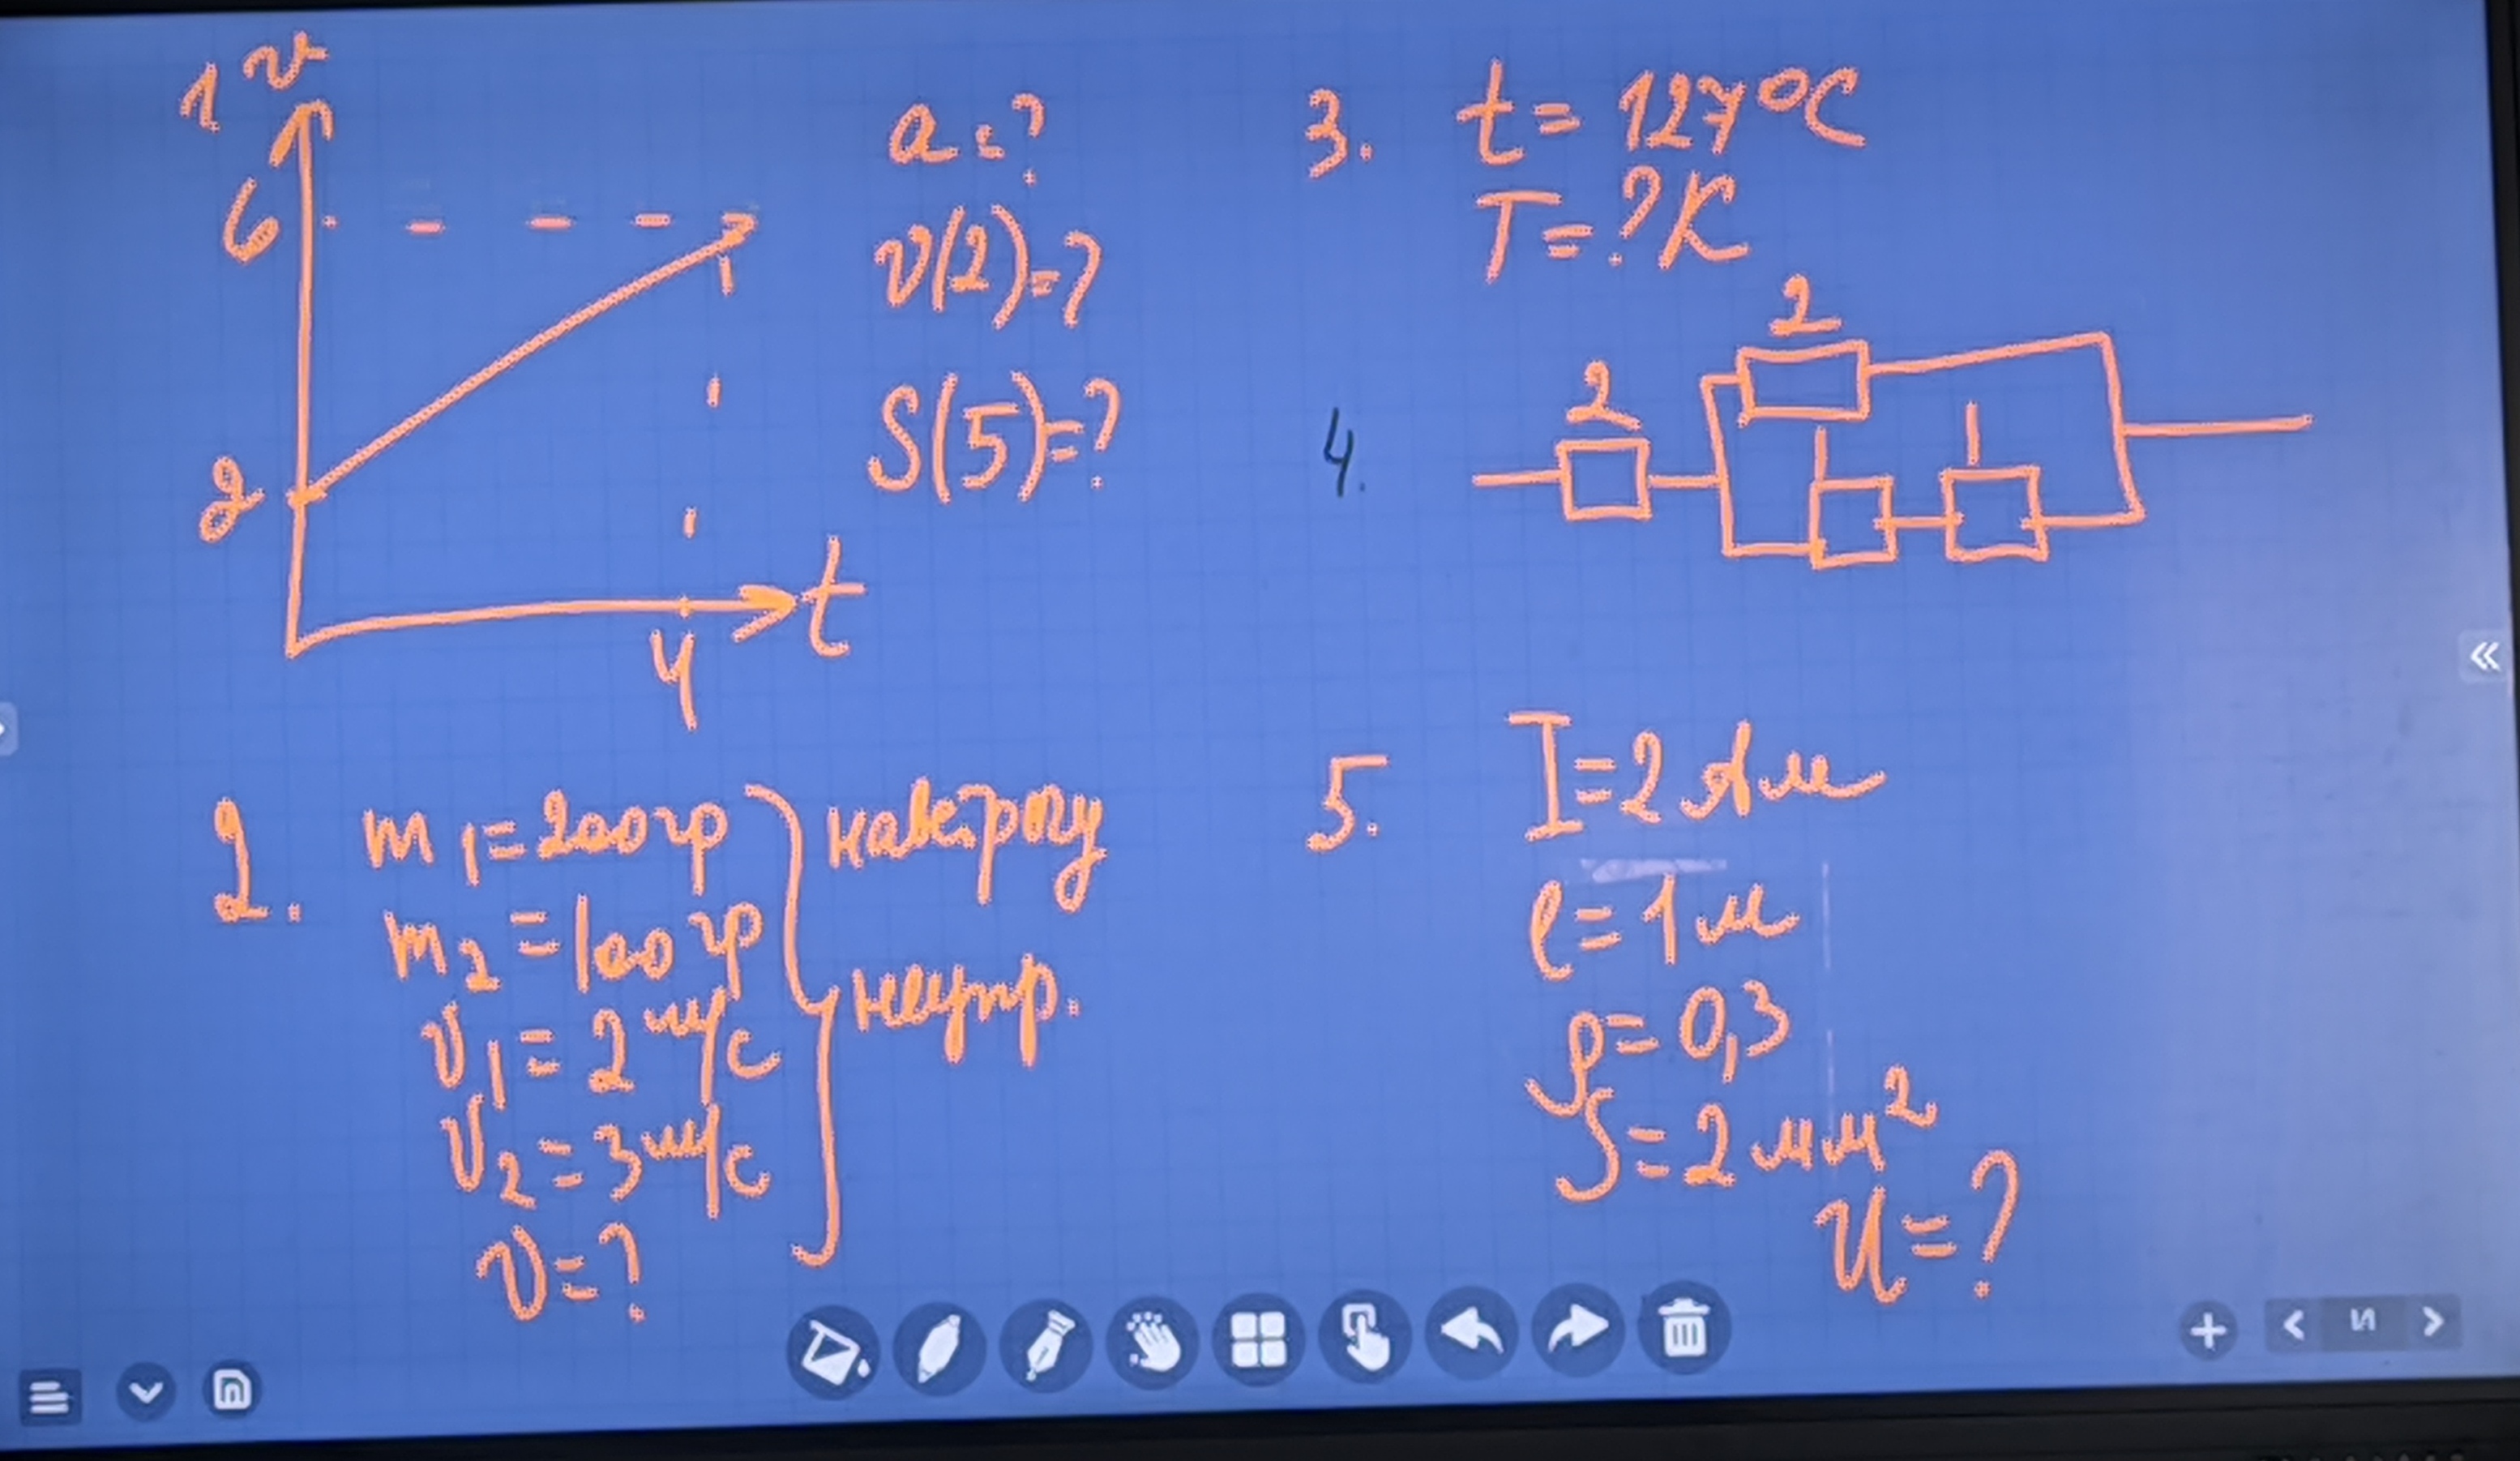 1
v
6
2
4
t
a = ?
v(2) = ?
S(5) = ?
2.
m1 = 200 гр
m2 = 100 гр
v1 = 2 м/с
v2 = 3 м/с
v = ?
навстречу
неупр.
3.
t = 127°C
T = ? K
4.
2
2
1
1
5.
I = 2 Ам
l = 1 м
ρ = 0,3
S = 2 мм²
U = ?